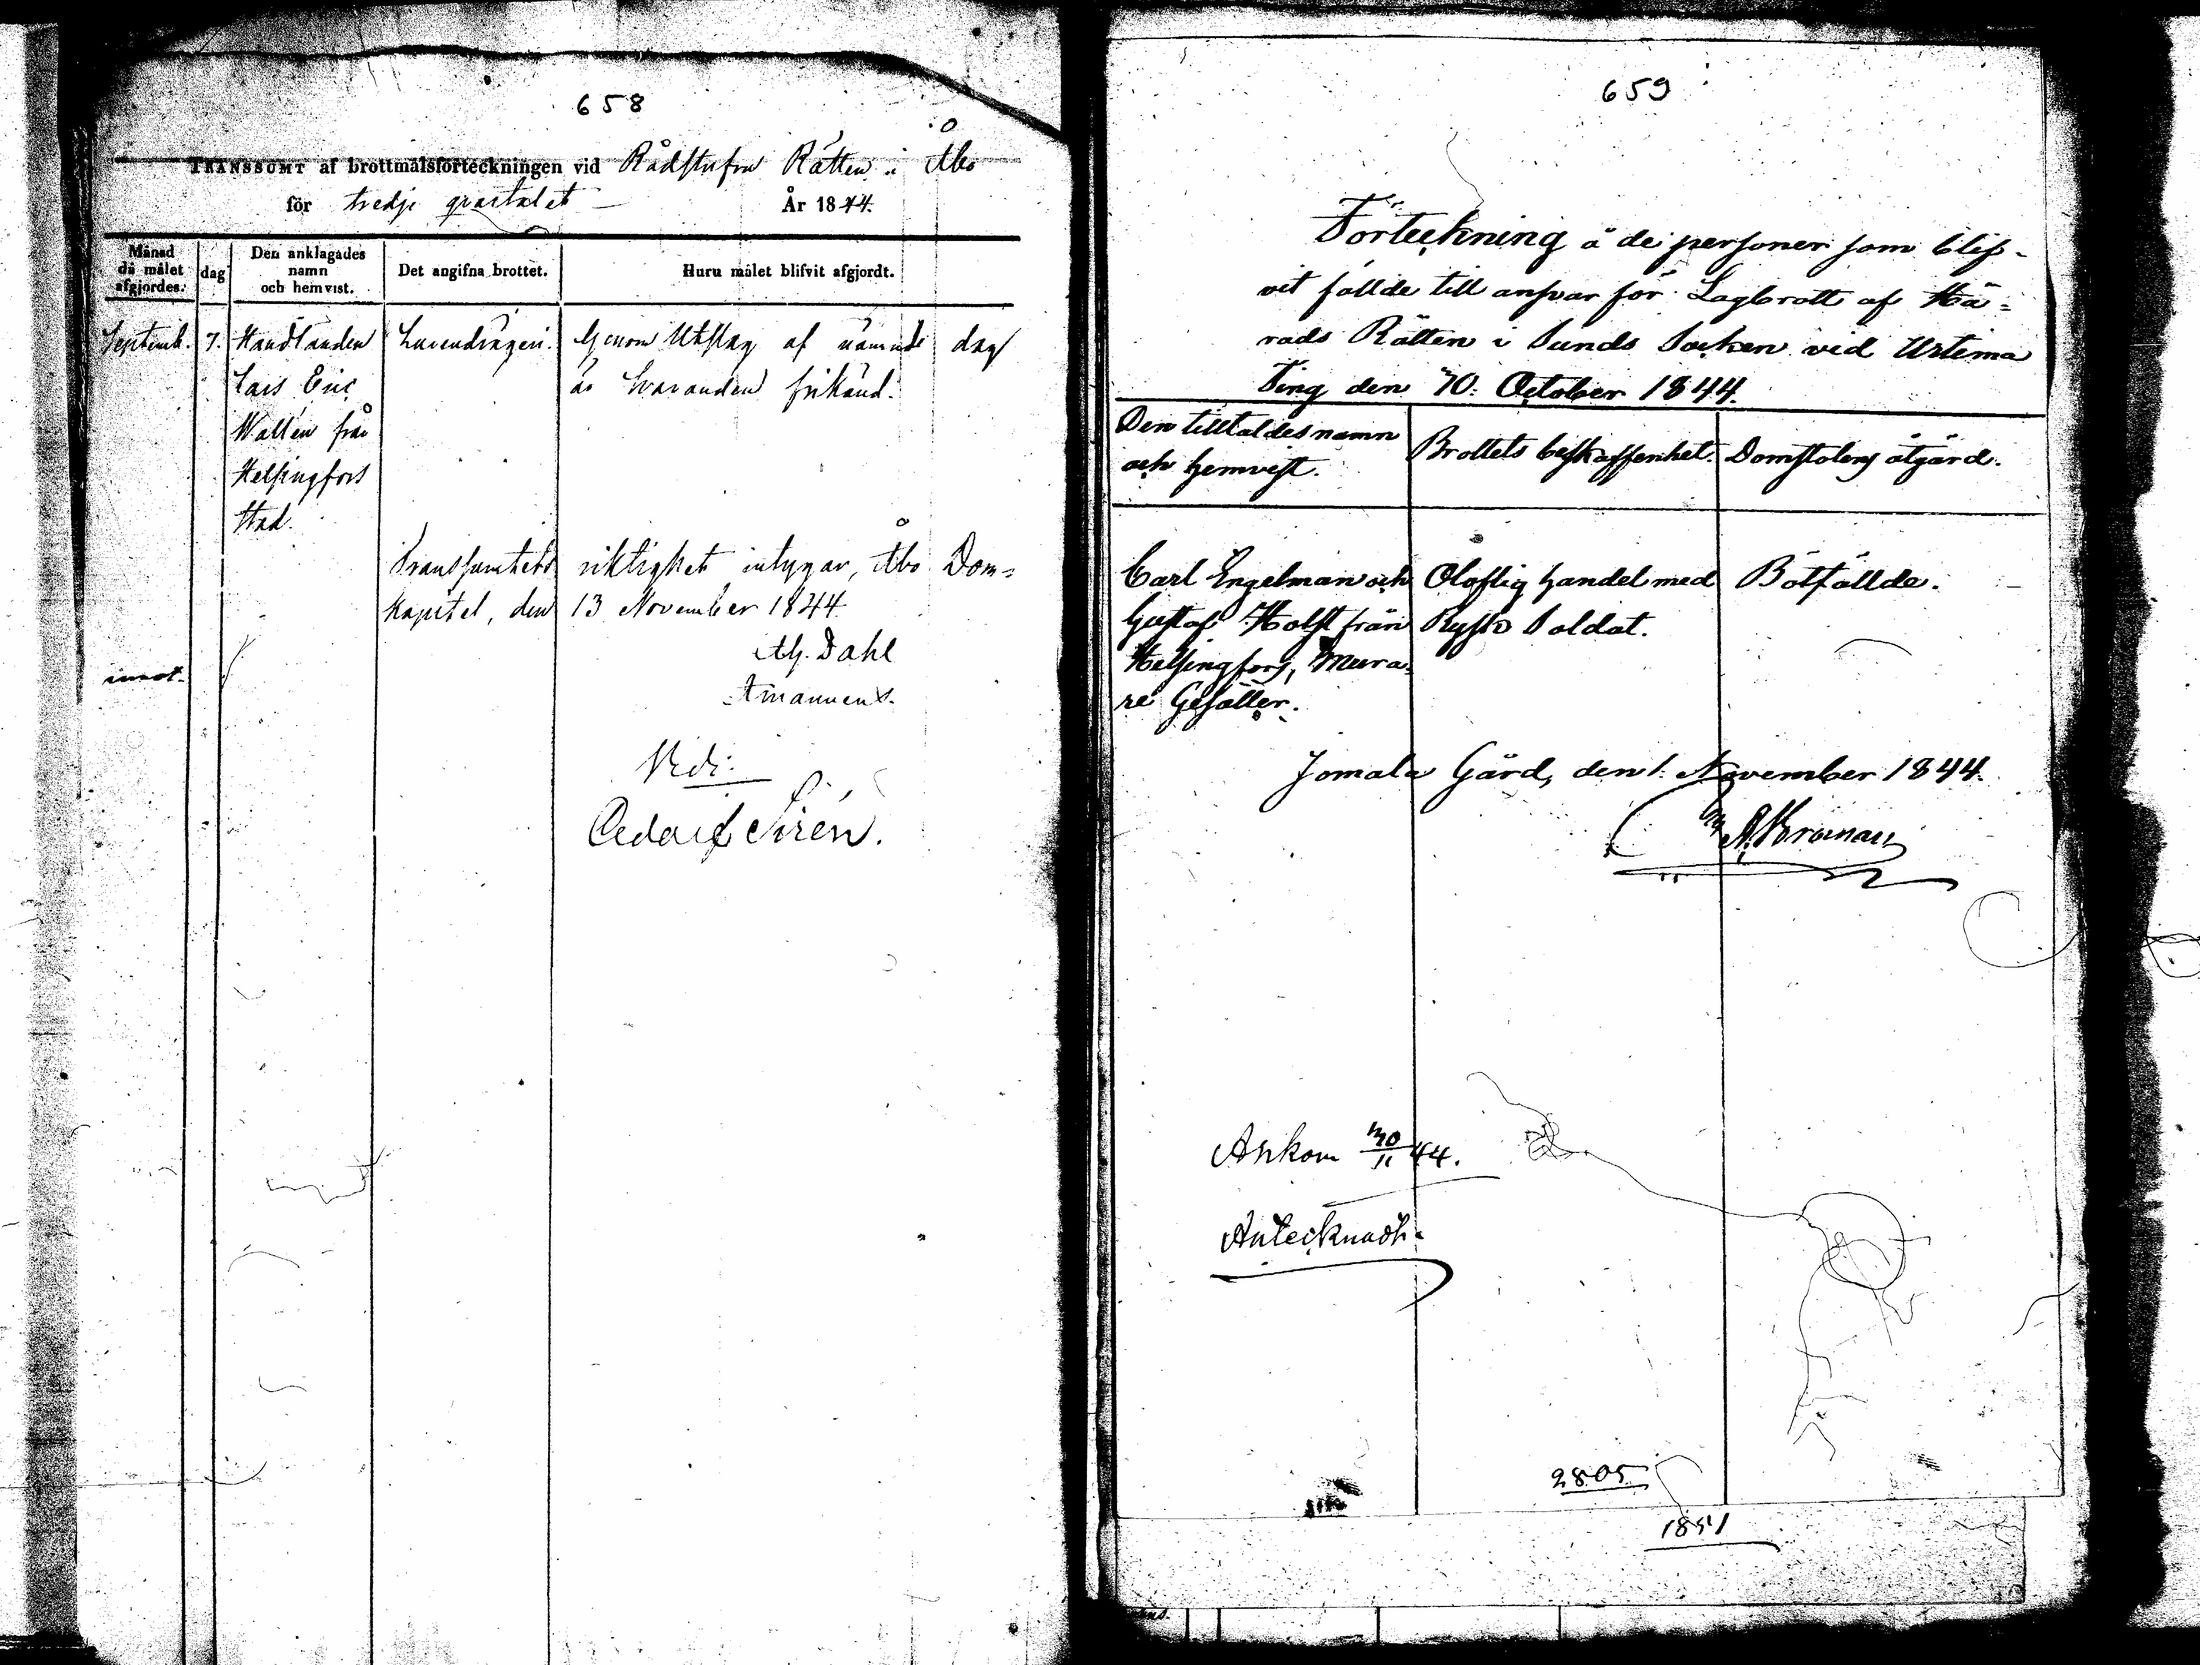 658
TRANSSUMT af brottmålsförteckningen vid Rådstufvu Rätten i Åbo
för tredje qvartalet År 1844.
Månad då målet afgjordes.
dag
Den anklagades namn och hemvist.
Det angifna brottet.
Huru målet blifvit afgjordt.
Septemb. 7. Handlanden Lurendrägeri. Genom Utslag af nämnde dag
Lars Eric är Svaranden frikänd.
Wallén från
Helsingfors
Stad.
Transsumtets riktighet intygar, Åbo Dom-
kapitel, den 13 November 1844.
Dahl
Amanuens.
Vidi:
Sirén.
659
Förteckning å de personer som blif-
vit fällde till ansvar för Lagbrott af Hä-
rads Rätten i Sunds Socken vid Urtima
Ting den 10. October 1844.
Den tilltaldes namn
och hemvist.
Brottets beskaffenhet.
Domstolens åtgärd.
Carl Engelman och Oloflig handel med Bötfällde.
Gustaf Holst från Rysk Soldat.
Helsingfors, Mura-
re Gesäller.
Jomala Gård, den 1. November 1844.
Ankom 30/11 44.
Antecknadt.
2805
1851